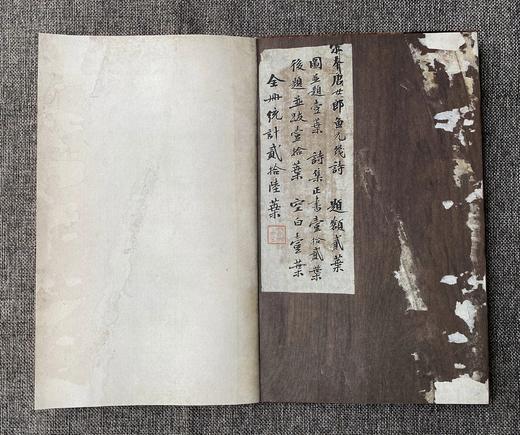 宋唐女郎魚元機詩 題額貳葉
圖並題壹葉 詩集正書壹拾貳葉
後題並跋壹拾葉 空白壹葉
全冊統計貳拾陸葉